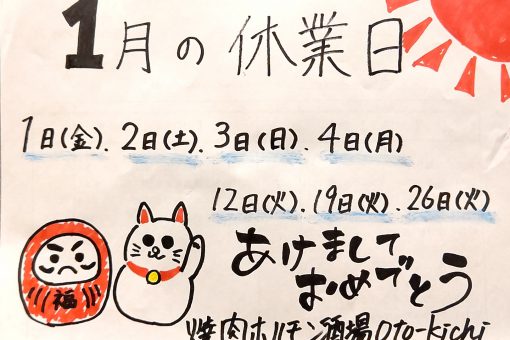 1月の休業日
1日(金). 2日(土). 3日(日). 4日(月)
12日(火). 19日(火). 26日(火)
あけまして
おめでとう
福
焼肉ホルモン酒場Oto-kichi